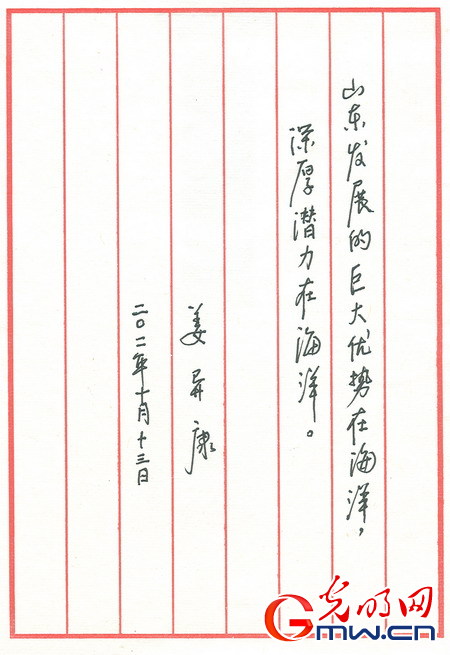 山东发展的巨大优势在海洋，
深厚潜力在海洋。
姜异康
二〇一一年十月十三日
光明网
GMW.cn